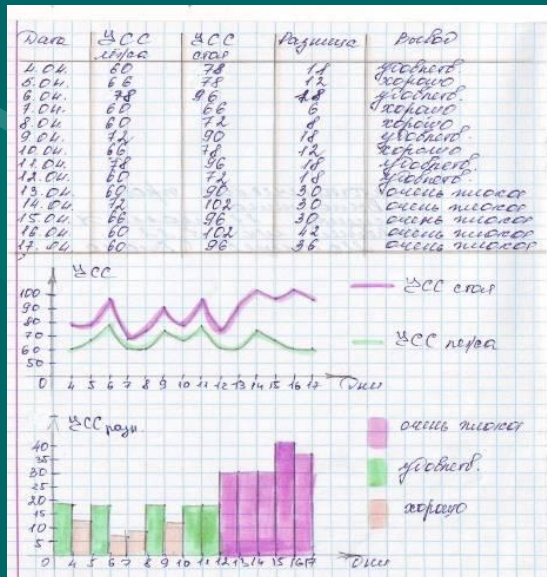 Дата ЧСС лёжа ЧСС стоя Разница Вывод
4.04. 60 78 18 удовлетв.
5.04. 66 78 12 хорошо
6.04. 78 96 18 удовлетв.
7.04. 60 66 6 хорошо
8.04. 60 72 8 хорошо
9.04. 72 90 18 удовлетв.
10.04. 66 78 12 хорошо
11.04. 78 96 18 удовлетв.
12.04. 60 72 18 удовлетв.
13.04. 60 90 30 очень плохое
14.04. 72 102 30 очень плохое
15.04. 66 96 30 очень плохое
16.04 60 102 42 очень плохое
17.04 60 96 36 очень плохое
ЧСС
100
90
80
70
60
50
0 4 5 6 7 8 9 10 11 12 13 14 15 16 17 Дни
ЧСС стоя
ЧСС лёжа
ЧСС разн.
40
35
30
25
20
15
10
5
0 4 5 6 7 8 9 10 11 12 13 14 15 16 17 Дни
очень плохое
удовлетв.
хорошо